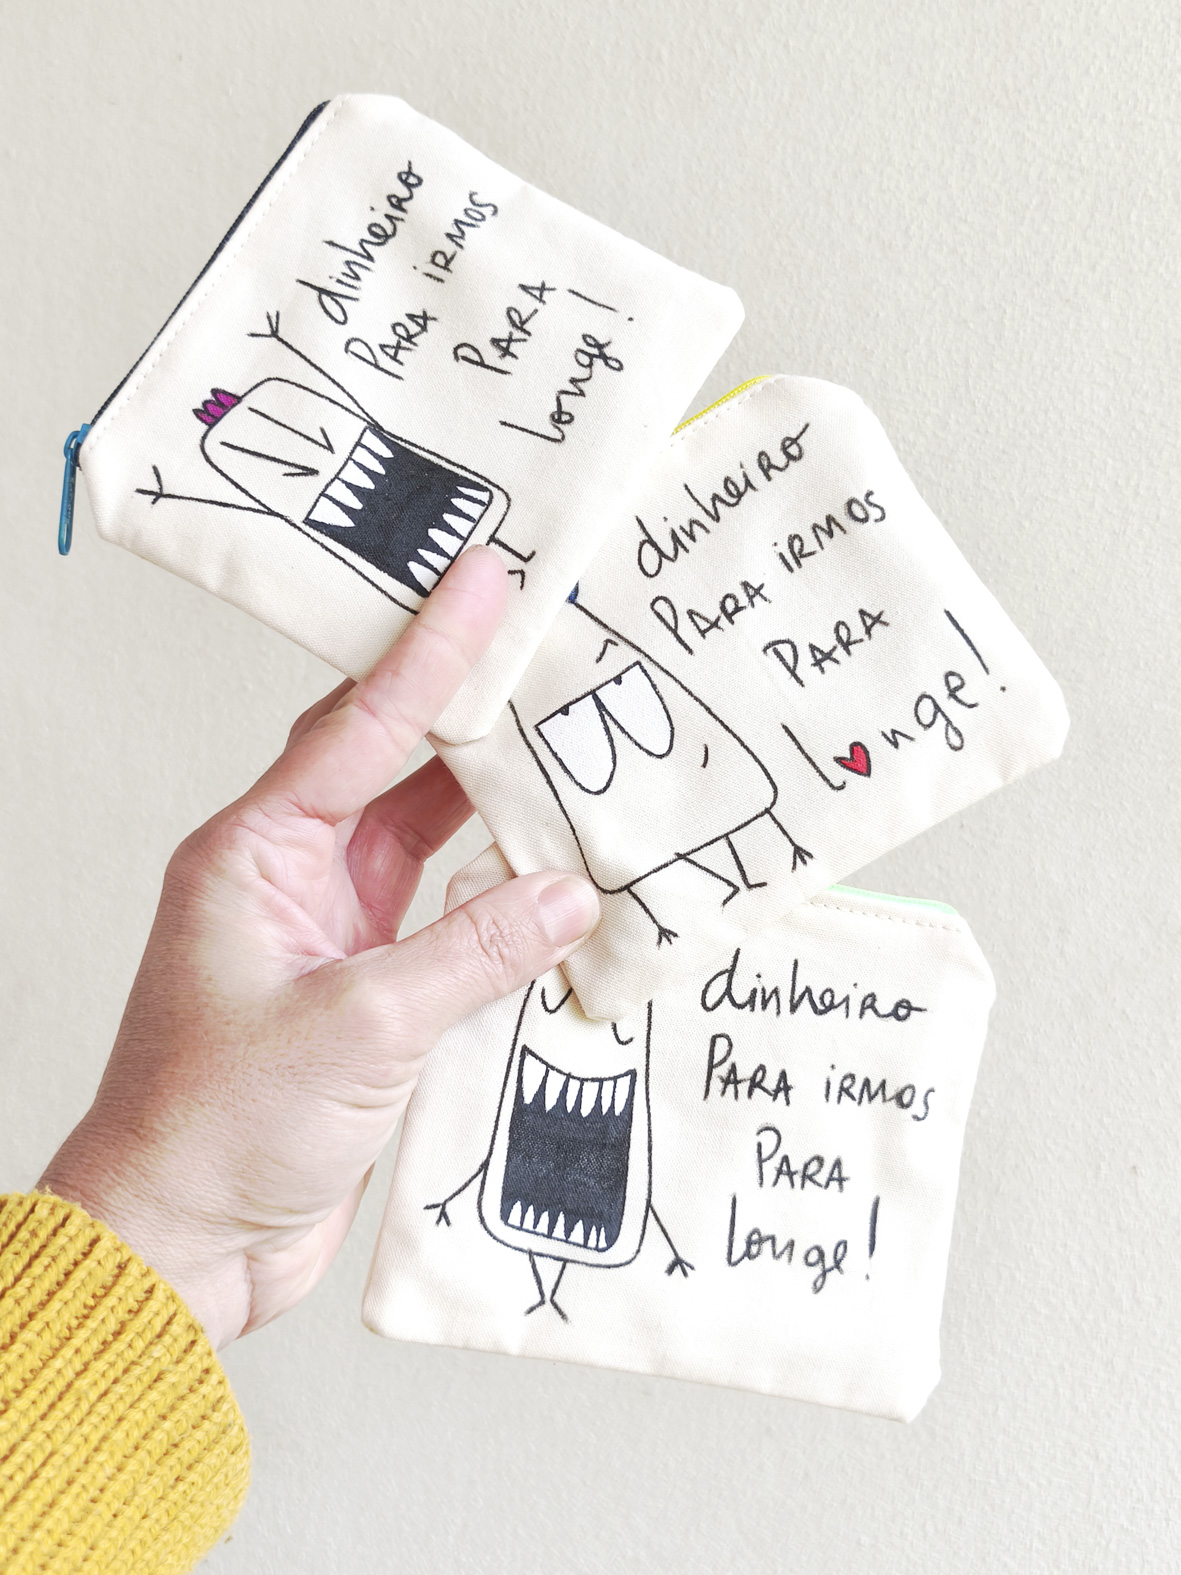 dinheiro
PARA iRMOS
PARA
longe!
dinheiro
PARA iRMOS
PARA
l❤nge!
dinheiro
PARA iRMOS
PARA
longe!